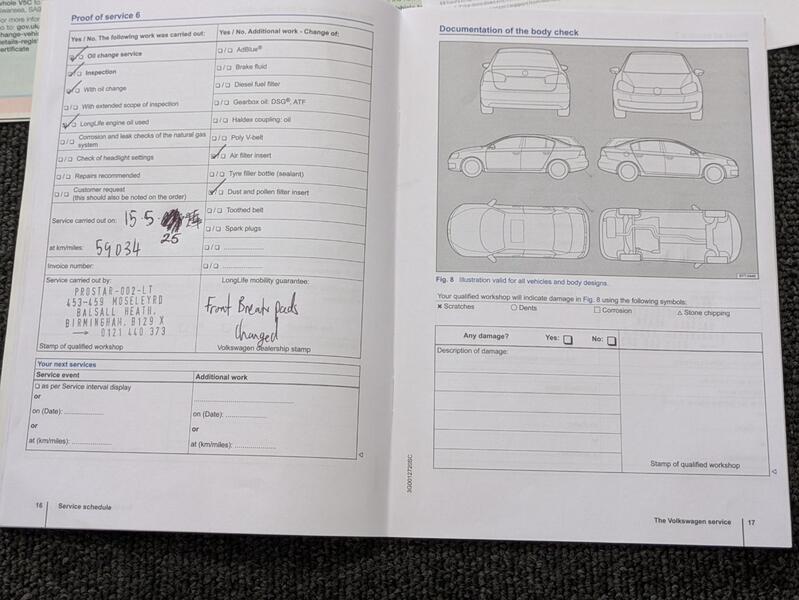 whole V5C to
Swansea, SA9
For more infor
to to: gov.uk/
change-vehic
details-regist
certificate
Proof of service 6
Yes / No. The following work was carried out:
❑/❑ Oil change service
❑/❑ Inspection
❑/❑ With oil change
❑/❑ With extended scope of inspection
❑/❑ LongLife engine oil used
❑/❑ Corrosion and leak checks of the natural gas
system
❑/❑ Check of headlight settings
❑/❑ Repairs recommended
❑/❑ Customer request
(this should also be noted on the order)
Service carried out on: 15.5.
25
at km/miles: 59034
Invoice number:
Yes / No. Additional work - Change of:
❑/❑ AdBlue®
❑/❑ Brake fluid
❑/❑ Diesel fuel filter
❑/❑ Gearbox oil: DSG®, ATF
❑/❑ Haldex coupling: oil
❑/❑ Poly V-belt
❑/❑ Air filter insert
❑/❑ Tyre filler bottle (sealant)
❑/❑ Dust and pollen filter insert
❑/❑ Toothed belt
❑/❑ Spark plugs
❑/❑ ......................
❑/❑ ......................
Service carried out by:
PROSTAR-002-LT
453-459 MOSELEYRD
BALSALL HEATH,
BIRMINGHAM, B129 X
→ 0121 440 373
Stamp of qualified workshop
LongLife mobility guarantee:
Front Breake pads
Changed
Volkswagen dealership stamp
Your next services
Service event
❑ as per Service interval display
or
on (Date): ......................
or
at (km/miles): ......................
Additional work
......................
on (Date): ......................
or
at (km/miles): ......................
16 Service schedule
Documentation of the body check
Fig. 8 Illustration valid for all vehicles and body designs.
Your qualified workshop will indicate damage in Fig. 8 using the following symbols:
× Scratches ○ Dents □ Corrosion △ Stone chipping
Any damage? Yes: ❑ No: ❑
Description of damage:
Stamp of qualified workshop
3G0012720SC
The Volkswagen service 17